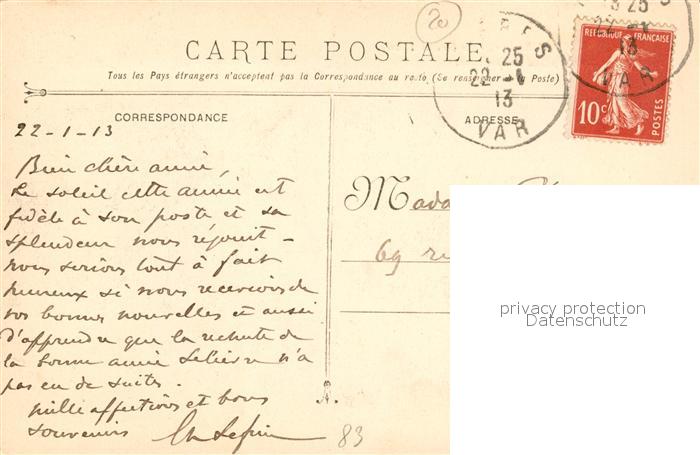 20
CARTE POSTALE
Tous les Pays étrangers n'acceptent pas la Correspondance au recto (Se renseigner à la Poste)
25
22 -1
13
VAR
S
25
22 -1
13
VAR
REPUBLIQUE FRANÇAISE
10c
POSTES
CORRESPONDANCE
ADRESSE
22-1-13
Bien chère amie,
Le soleil cette année est
fidèle à son poste et sa
splendeur nous réjouit -
nous serions tout à fait
heureux si nous recevions de
vos bonnes nouvelles et aussi
d'apprendre que la rechute de
la bonne amie Lelièvre n'a
pas eu de suites.
mille affections et bons
souvenirs
83
Mada
69 ru
privacy protection
Datenschutz